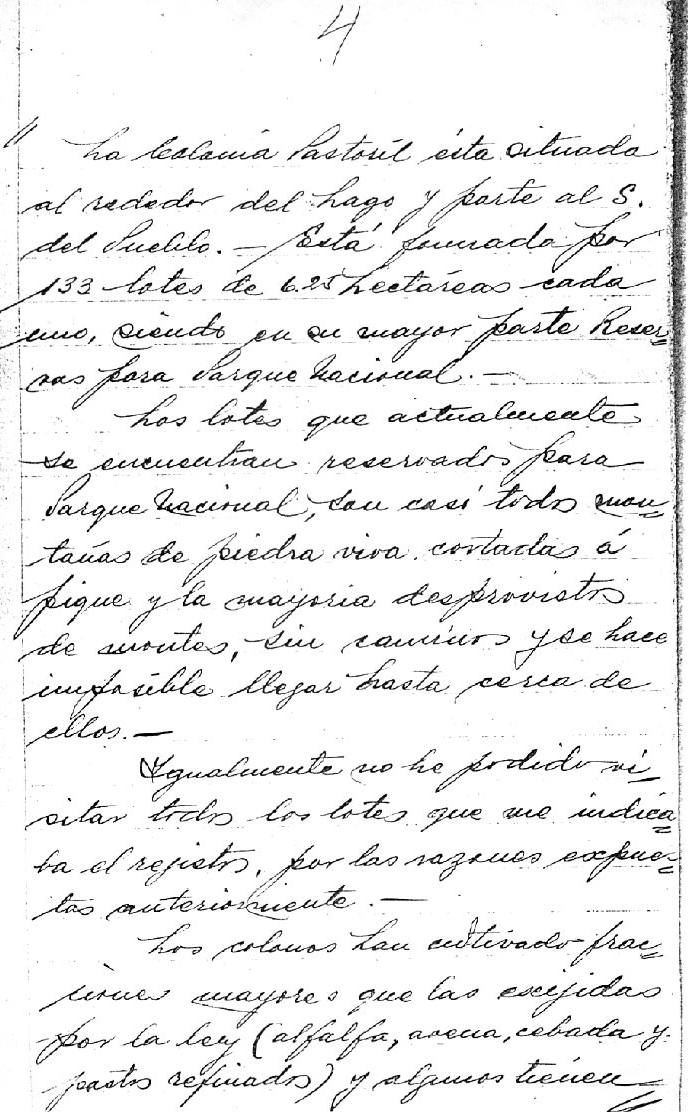 4
" La Colonia Pastoril ésta situada
al rededor del Lago y parte al S.
del Pueblo. — Está formada por
133 lotes de 6.25 hectáreas cada
uno, siendo en su mayor parte Reser=
vas para Parque Nacional. —
Los lotes que actualmente
se encuentran reservados para
Parque Nacional, son casi todos mon=
tañas de piedra viva cortadas á
pique y la mayoria desprovistos
de montes, sin caminos y se hace
imposible llegar hasta cerca de
ellos. —
Igualmente no he podido vi=
sitar todos los lotes que me indica=
ba el rejistro, por las razones expues=
tas anteriormente. —
Los colonos han cultivado frac=
ciones mayores que las exijidas
por la ley (alfalfa, avena, cebada y
pastos refinados) y algunos tienen